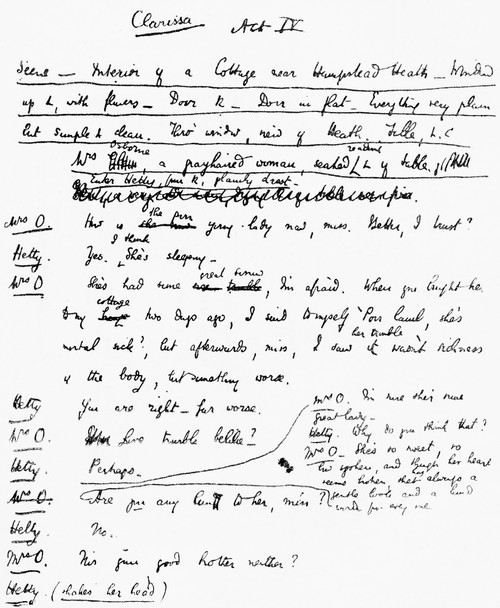 Clarissa Act IV
Scene – Interior of a Cottage near Hampstead Heath – Window
up L, with flowers – Door R – Door in flat – Everything very plain
but simple & clean. Thro' window, view of Heath. Table, L.C
Mrs Osborne a grayhaired woman, seated L of table.
Enter Hetty, R, plainly drest –
Mrs O. How is the poor young lady now, miss. Better, I trust?
Hetty. Yes. I think she's sleeping –
Mrs O She's had some great sorrow, I'm afraid. When you brought her
to my cottage two days ago, I said to myself 'Poor lamb, she's
mortal sick', but afterwards, miss, I saw her trouble wasn't sickness
of the body, but something worse.
Hetty You are right – far worse.
Mrs O. Love trouble belike?
Hetty. Perhaps.
Mrs O. I'm sure she's some
great lady –
Hetty. Why do you think that?
Mrs O – She's so sweet, so
spoken, and though her heart
seems broken, she's always a
gentle look and a kind
word for every one
Mrs O. Are you any to her, miss?
Hetty. No.
Mrs O. Nor your good brother neither?
Hetty. (shakes her head)